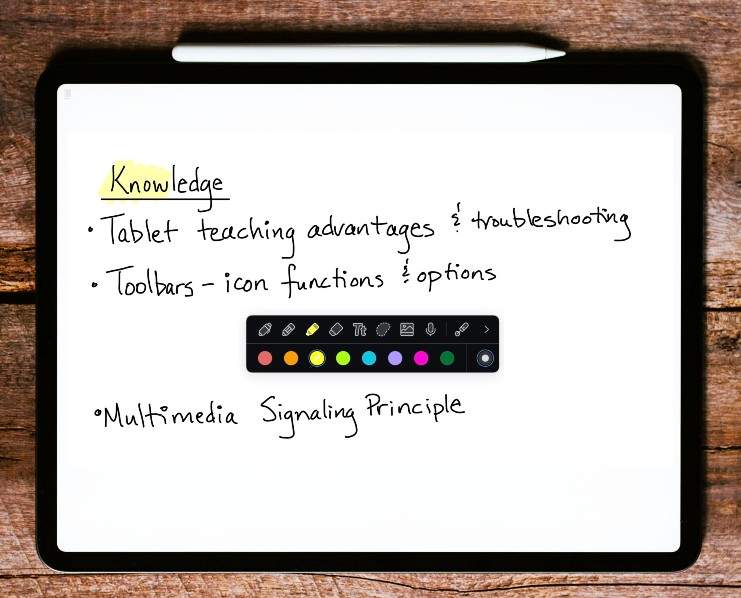 Knowledge
• Tablet teaching advantages & troubleshooting
• Toolbars - icon functions & options
Tt
• Multimedia Signaling Principle